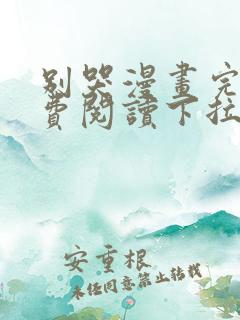 别哭漫畫完
費閱讀下拉
安重根
未经同意禁止转载